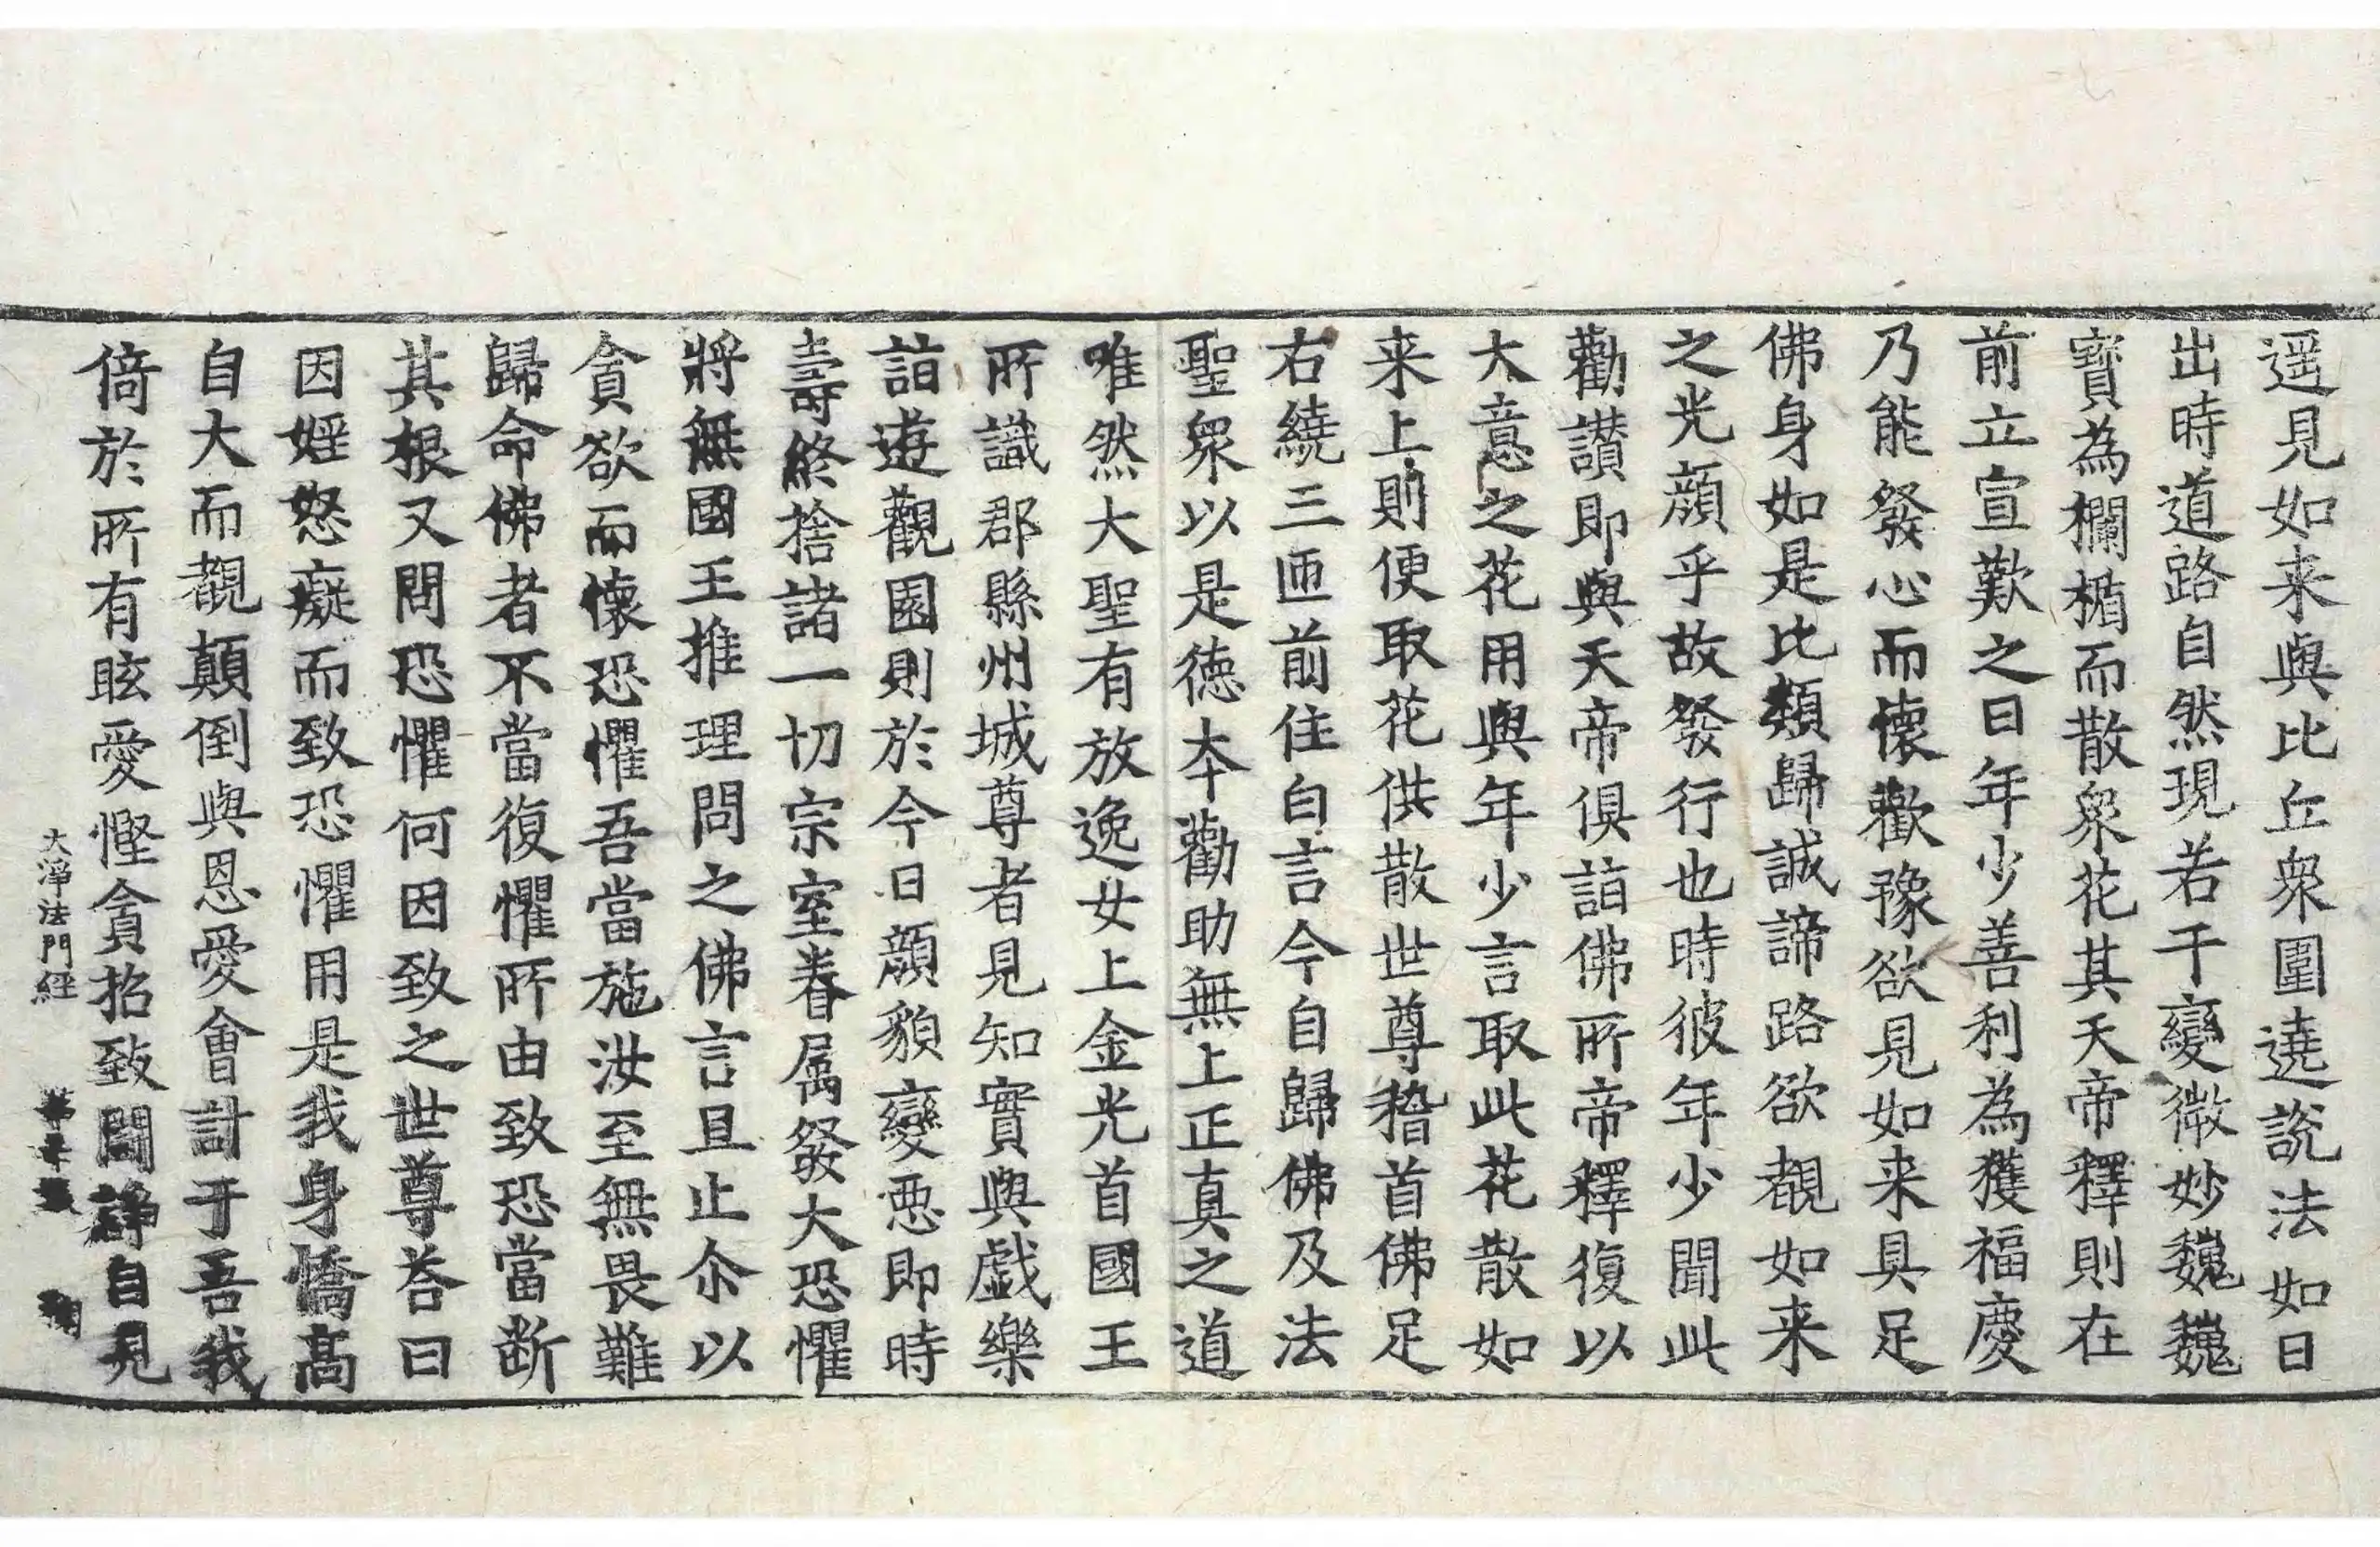 遥見如来與比丘衆圍遶說法如日
出時道路自然現若干變微妙巍巍
寶為欄楯而散衆花其天帝釋則在
前立宣歎之曰年少善利為獲福慶
乃能發心而懷歡豫欲見如来具足
佛身如是比類歸誠諦路欲覩如来
之光顔乎故發行也時彼年少聞此
勸讃即與天帝俱詣佛所帝釋復以
大意之花用與年少言取此花散如
来上則便取花供散世尊稽首佛足
右繞三匝前住白言今自歸佛及法
聖衆以是德本勸助無上正真之道
唯然大聖有放逸女上金光首國王
所識郡縣州城尊者見知實與戲樂
詣遊觀園則於今日顔貌變惡即時
壽終捨諸一切宗室眷属發大恐懼
將無國王推理問之佛言且止尒以
貪欲而懷恐懼吾當施汝至無畏難
歸命佛者不當復懼所由致恐當断
其根又問恐懼何因致之世尊荅曰
因婬怒癡而致恐懼用是我身憍髙
自大而覩顛倒與恩愛會計于吾我
倚於所有眩愛慳貪招致鬪諍自見
大淨法門經